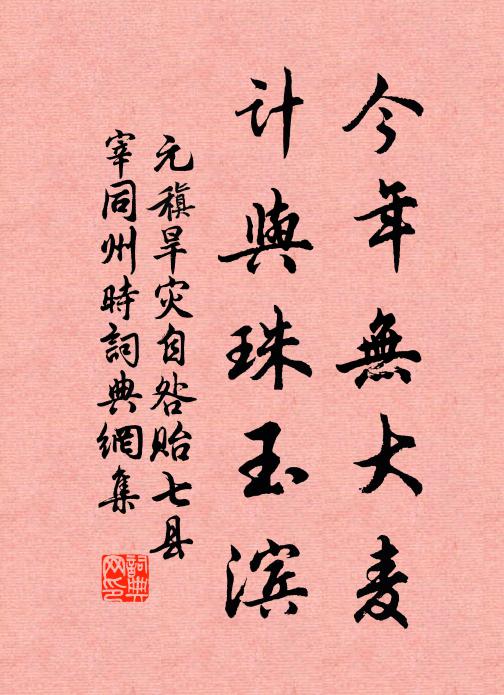 今年無大麦
计與珠玉滨
元稹旱灾自咎贻七县
宰同州時詞典網集
詞典网印